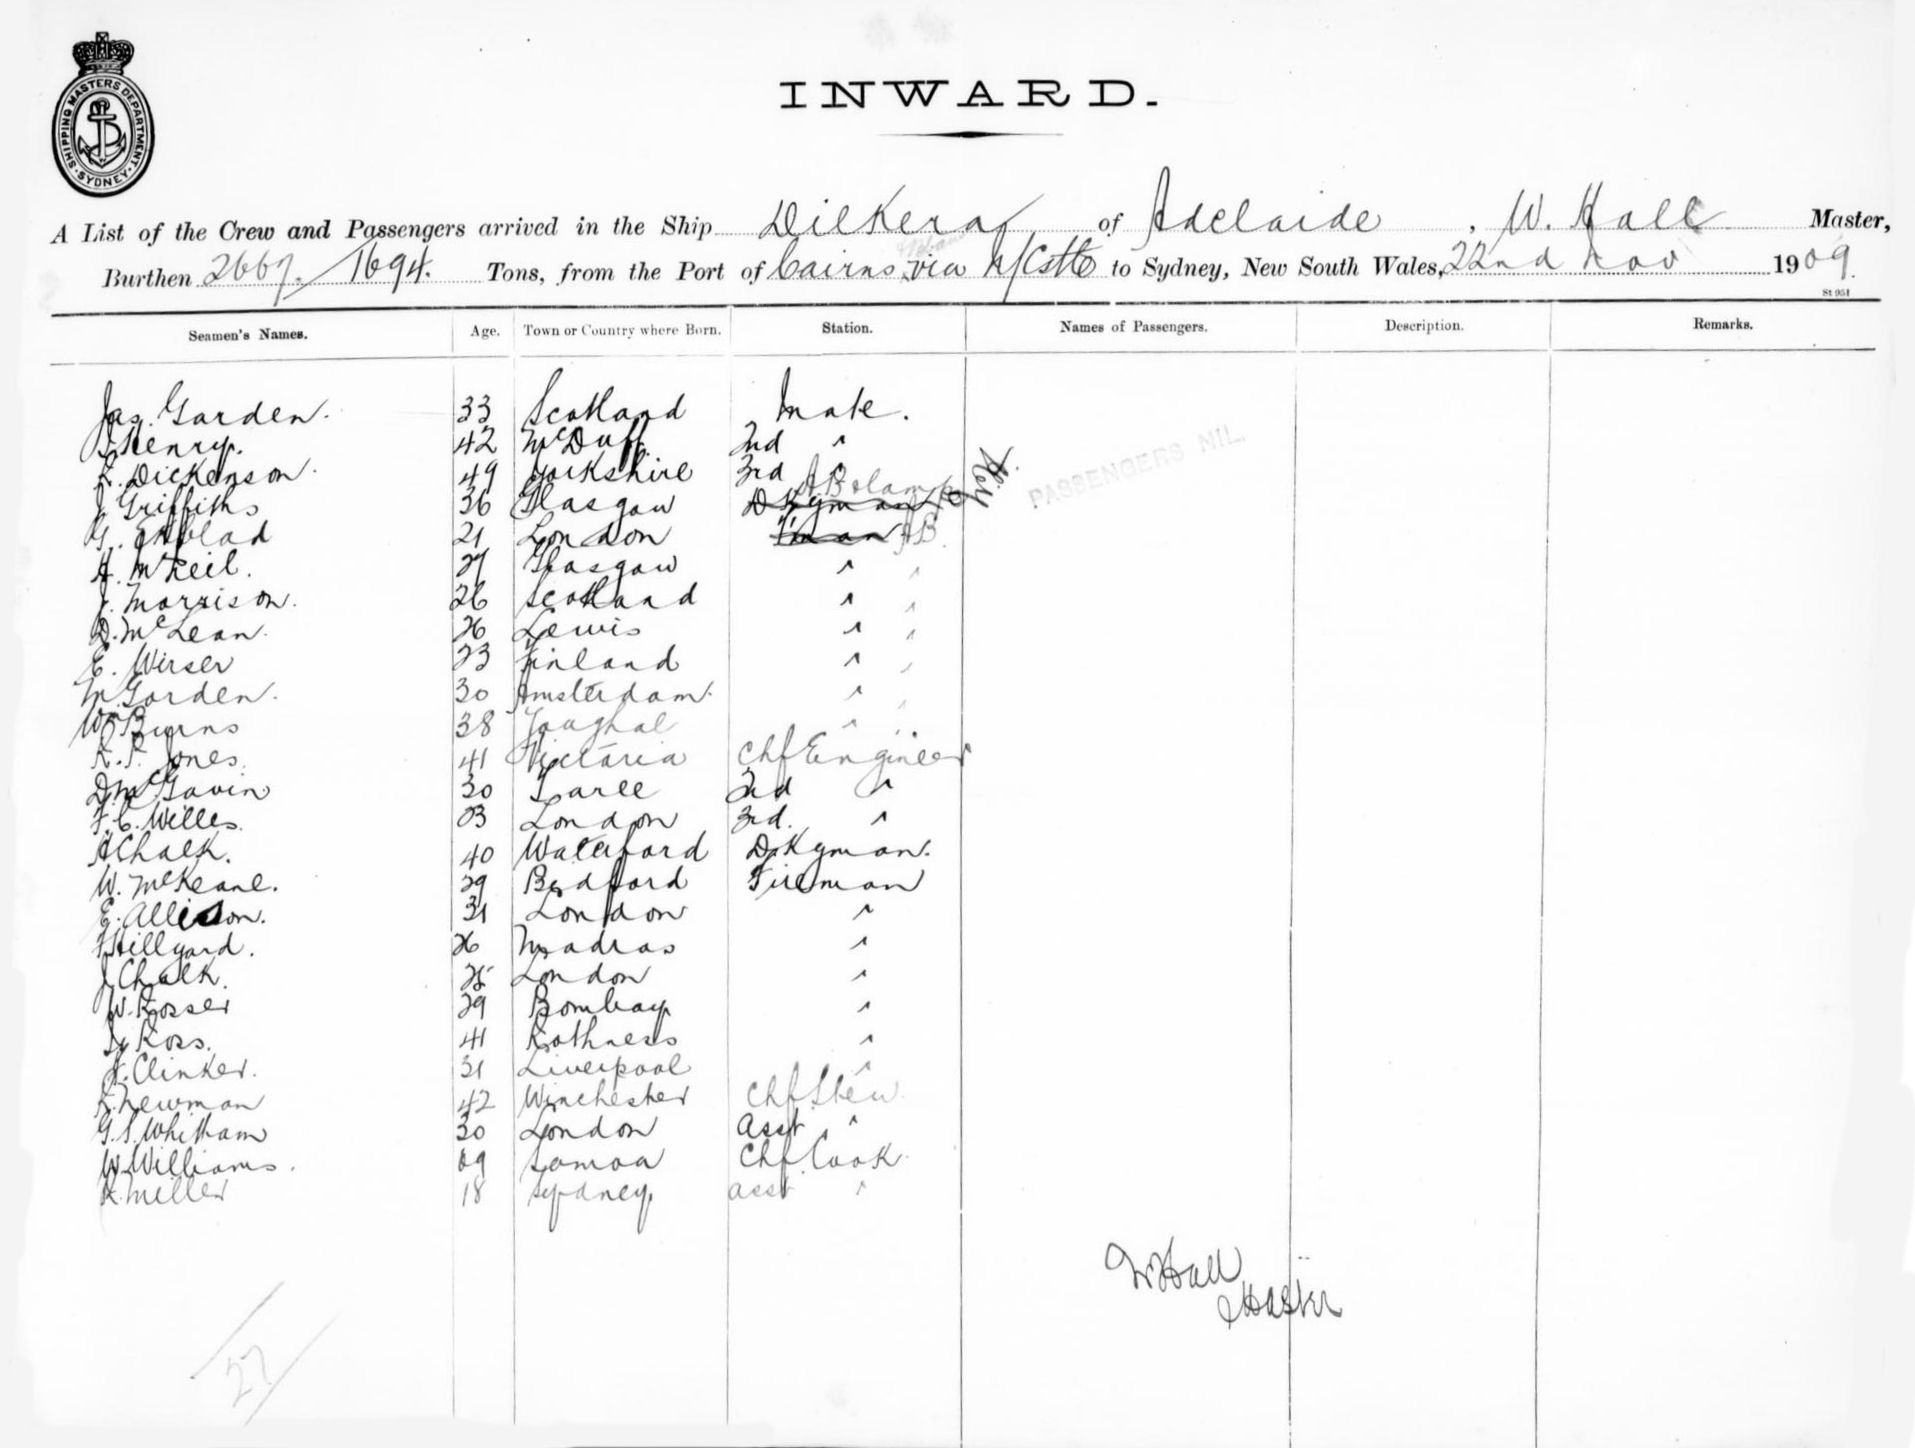 SHIPPING MASTERS DEPARTMENT · SYDNEY ·
INWARD.
A List of the Crew and Passengers arrived in the Ship Dilkera of Adelaide, W. Hall Master,
Burthen 2667. / 1694. Tons, from the Port of Cairns via N/Cstle to Sydney, New South Wales, 22nd Nov 1909.
St 951
Seamen's Names. Age. Town or Country where Born. Station. Names of Passengers. Description. Remarks.
Jas. Garden. 33 Scotland Mate.
Henry. 42 McDuff 2nd "
Dickenson. 49 Yorkshire 3rd "
J. Griffiths 36 Glasgow Dkyman AB & lamps
PASSENGERS NIL.
G. Ekblad 21 London F'man AB.
A. McNeil. 27 Glasgow " "
J. Morrison. 26 Scotland " "
D. McLean. 26 Lewis " "
E. Wirser 23 Finland " "
M. Gorden. 30 Amsterdam. " "
Wm Burns 38 Youghal " "
R. P. Jones. 41 Victoria Chf Engineer
D. McGavin 30 Taree 2nd "
F. C. Willes. 23 London 3rd. "
A Chalk. 40 Waterford Dkyman.
W. McKeane. 29 Bedford Fireman
E. Allison. 31 London "
Hillyard. 26 Madras "
J Chalk. 25 London "
W. Rosser 29 Bombay "
Ross. 41 Kothness "
J. Clinker. 31 Liverpool "
R. Newman 42 Winchester Chf Stew.
G. S. Whitham 30 London Asst "
W. Williams. 29 Samoa Chf Cook.
R. Miller 18 Sydney asst "
W Hall
Master
27